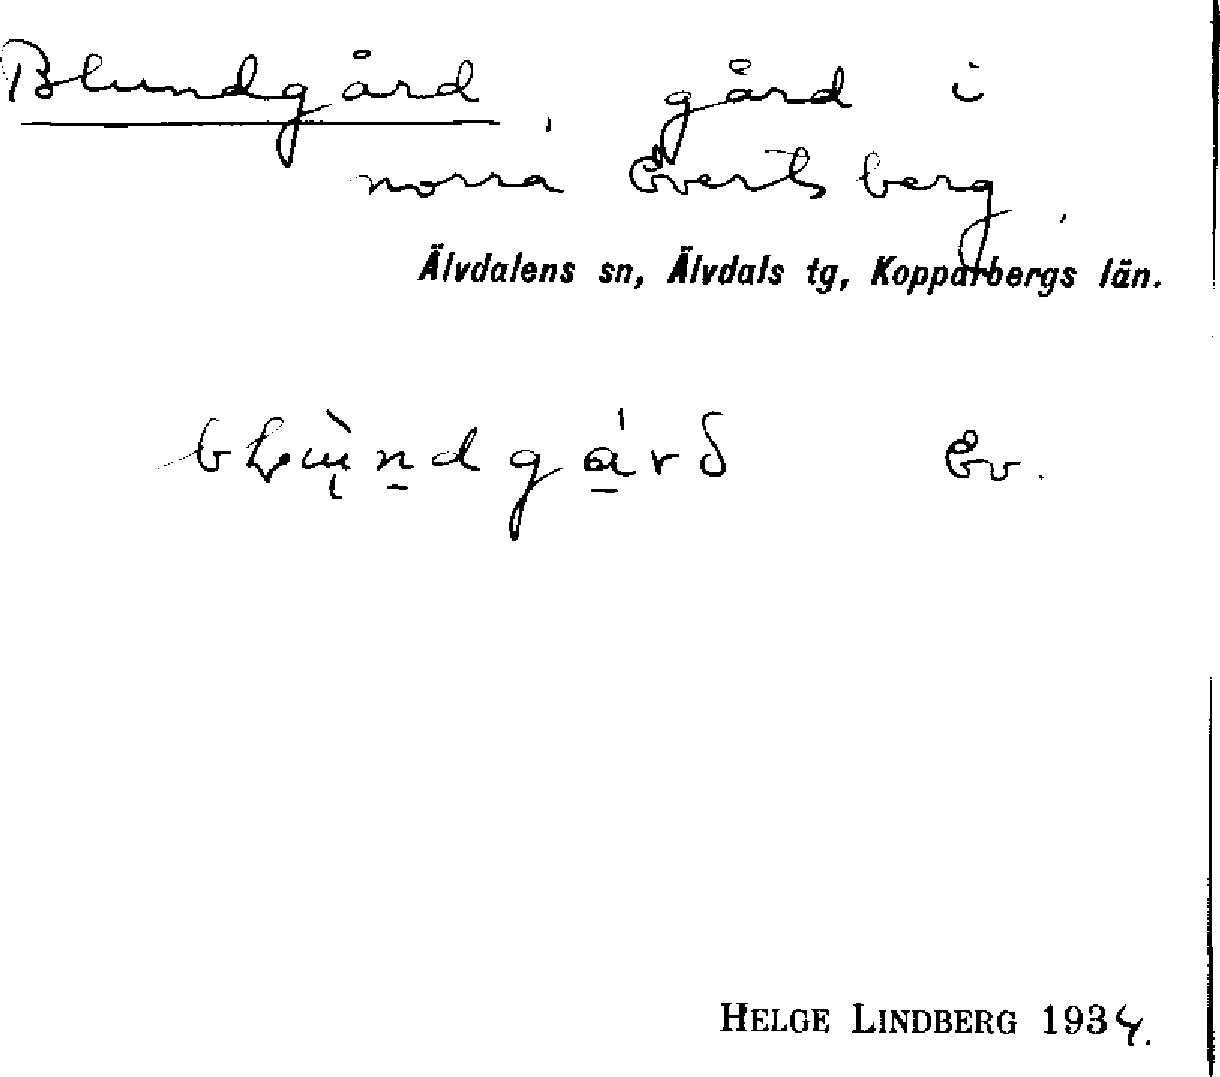 Blundgård, gård i
norra Evertsberg,
Älvdalens sn, Älvdals tg, Kopparbergs län.
Ev.
HELGE LINDBERG 1934.